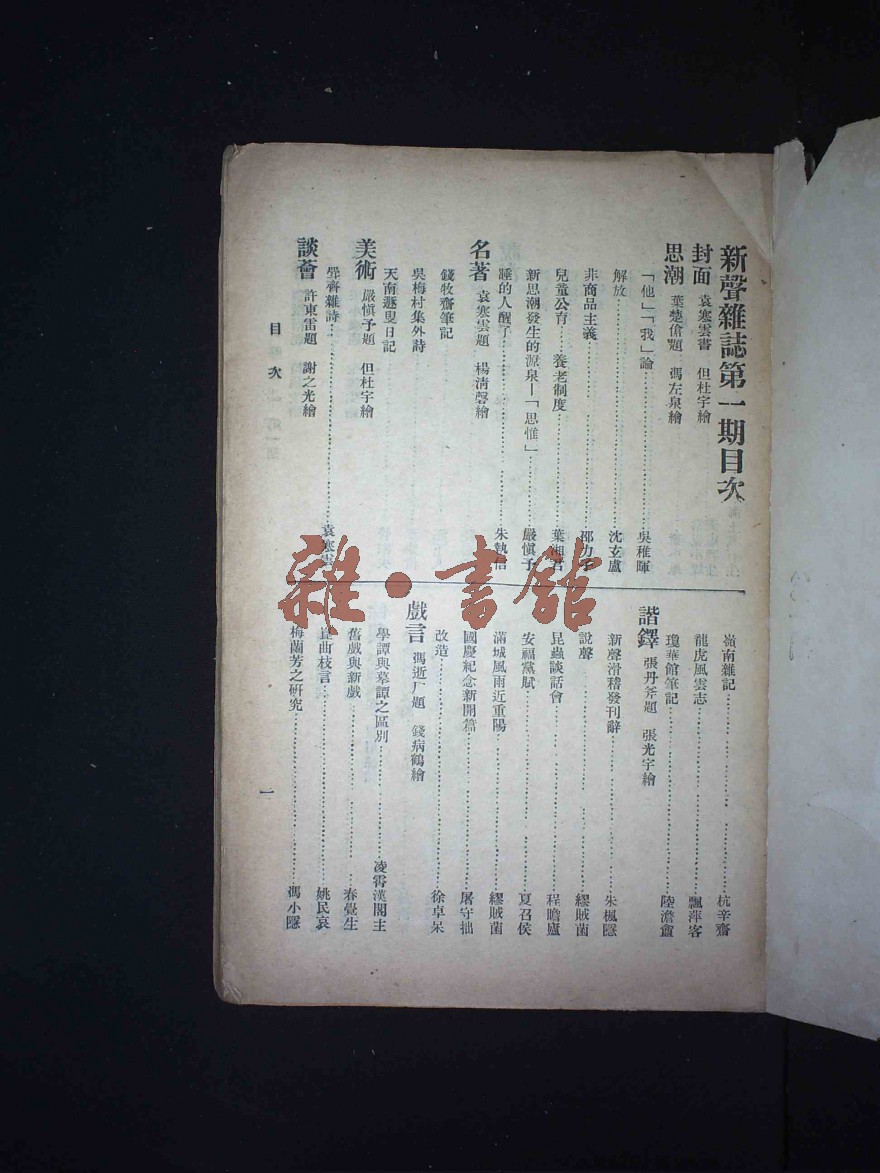 新聲雜誌第一期目次
封面 袁寒雲書 但杜宇繪
思潮 葉楚傖題 馮左泉繪
「他」「我」論……吳稚暉
解放……沈玄廬
非商品主義……邵力子
兒童公育……養老制度……葉湘君
新思潮發生的源泉—「思惟」……嚴愼予
睡的人醒了……朱執信
名著 袁寒雲題 楊淸磬繪
錢牧齋筆記
吳梅村集外詩
天南遯叟日記
美術 嚴愼予題 但杜宇繪
齋雜詩……袁寒雲
談薈 許東雷題 謝之光繪
嶺南雜記……杭辛齋
龍虎風雲志……飄萍客
瓊華館筆記……陸澹盦
諧鐸 張丹斧題 張光宇繪
新聲滑稽發刊辭……朱楓隱
說聲……繆賊菌
昆蟲談話會……程瞻廬
安福黨賦……夏召侯
滿城風雨近重陽……繆賊菌
國慶紀念新開篇……屠守拙
改造……徐卓呆
戲言 馮逝厂題 錢病鶴繪
學譚與摹譚之區別……凌霄漢閣主
舊戲與新戲……春覺生
崑曲枝言……姚民哀
梅蘭芳之研究……馮小隱
目次
一
雜·書館